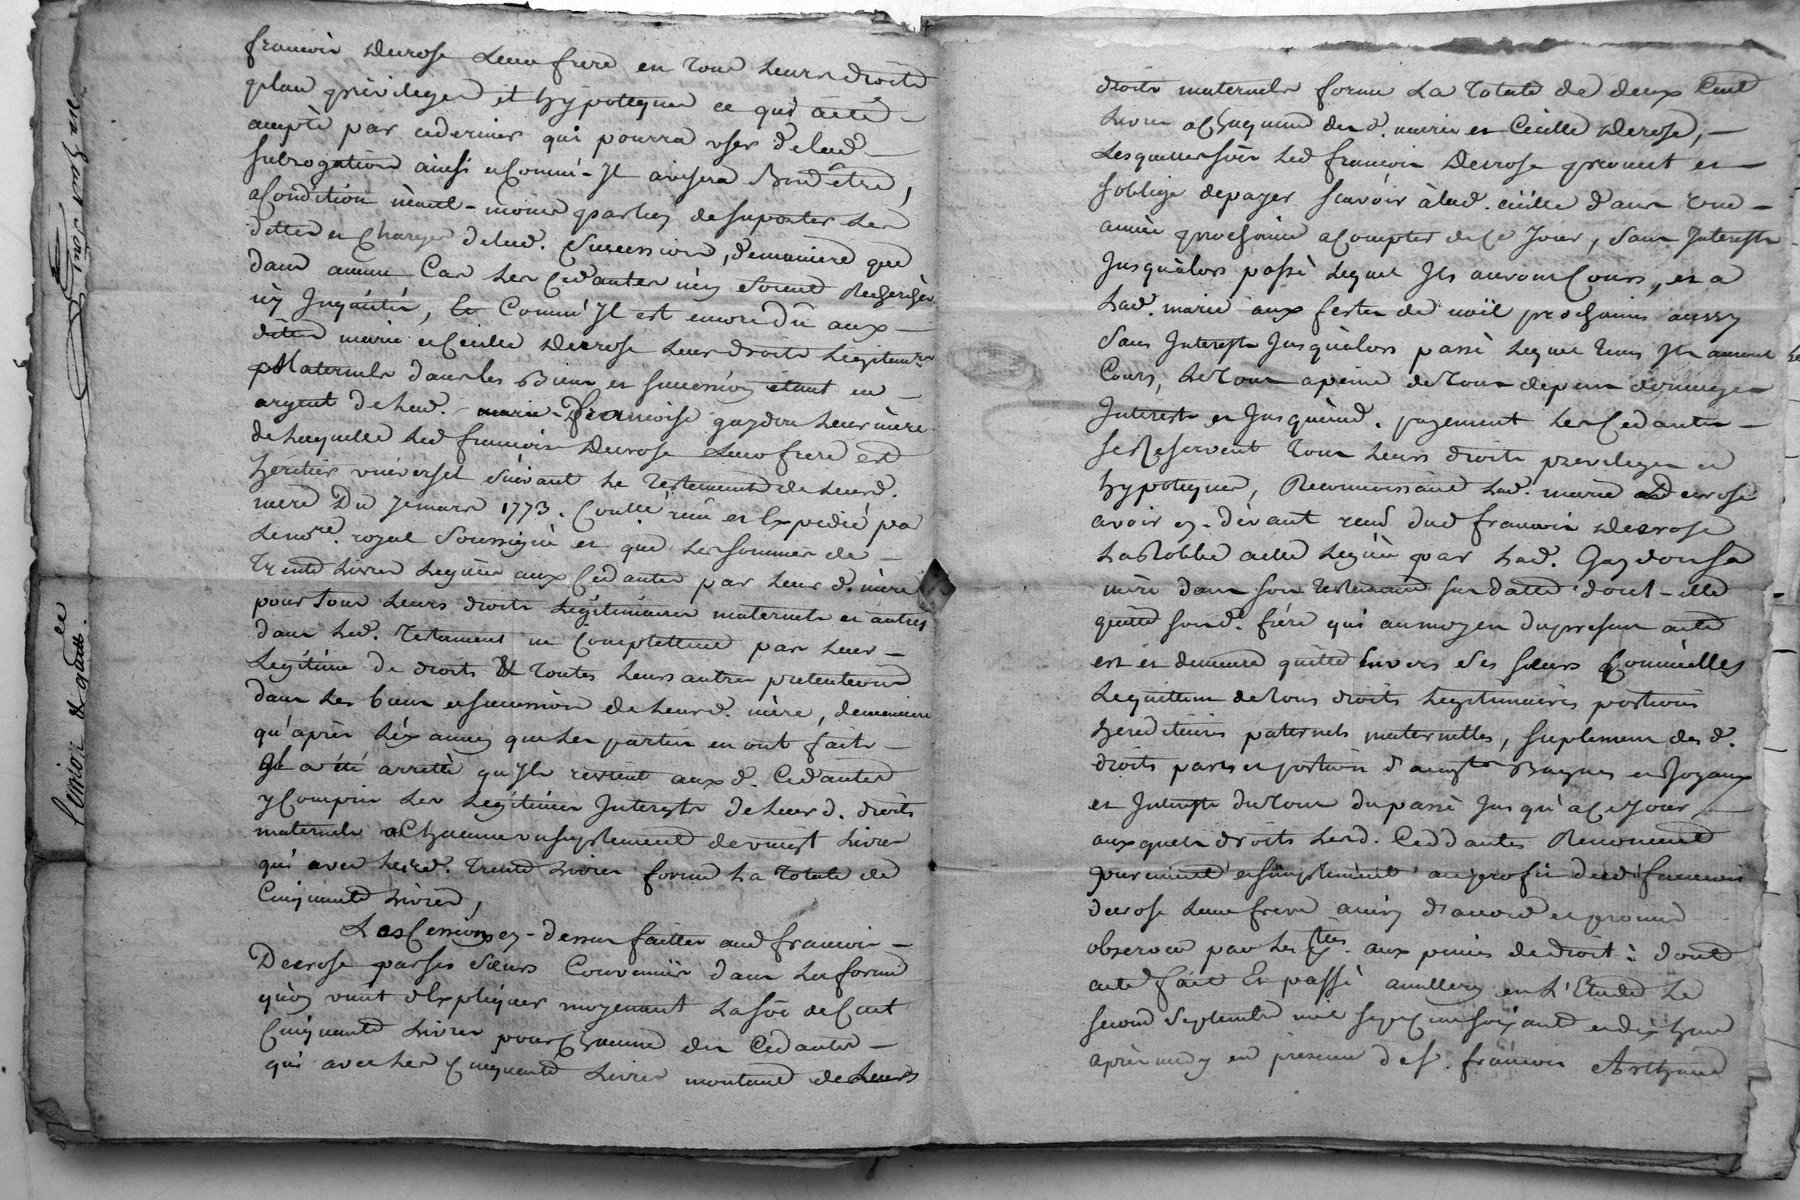 francois decrose Leur frere en tous Leurs droits
plan privileges et hypoteques ce qui a été
accepté par ce dernier qui pourra user de lad
subrogation ainsi et Comm'Il avisera Bon etre,
a Condition néant-moins par luy de suporter Les
dettes et Charges de lad. Succession, de maniere que
dans aucun Cas Les Cedantes n'en soient Recherchées
ny Inquiétés, Comm'Il est encore dû aux
dittes marie et Cecille decrose Leurs droits Legitimres
Maternels dans les Biens et succession etant en
argent de lad. marie françoise gaydon Leur mère
de Laquelle Led francois decrose Leur frere est
heritier universel suivant Le Testament de Leurd.
mère Du 7e mars 1773. Contllé reçu et Expedié par
Le nore. royal Soussigné et que Les sommes de
Trente Livres Leguées aux Cedantes par Leur d. mère
pour Tous Leurs droits Légitimaires maternels et autres
dans Led. Testament ne Complettent pas Leur
Legitime de droits & toutes Leurs autres pretentions
dans Les biens et succession de Leurd. mère, de maniere
qu'après L'éxamen que Les parties en ont fait
Il a été arretté qu'Il revient aux d. Cedantes
y Compris Les Legitimes Interests de Leurd. droits
maternels a Chacune un suplement de vingt Livres
qui avec Lesd. Trente Livres forme La Totale de
Cinquante Livres,
Les Cessions cy-dessus faittes aud francois
Decrose par ses Sœurs Convenües dans La forme
qu'on vient d'Expliquer moyenant La Somme de Cent
Cinquante Livres pour Chacune des Cedantes
qui avec Les Cinquante Livres montant de Leurs
droits maternels forme La Totale de deux Cent
Livres a Chacune des d. marie et Cecille decrose,
Lesquelles Led francois Decrose promet et
s'oblige de payer scavoir à lad. cecille d'aux une
année prochaine a Compter de Ce Jour, Sans Interests
Jusqu'alors passé Lequel Ils auront Cours, et a
Lad. marie aux festes de noël prochaines aussy
Sans Interests Jusqu'alors passé Lequel tems Ils auront Le
Cours, Le Tout a peine de Tous depens domages
Interests et Jusqu'aud. payement Les Cedantes
se Reservent Tous Leurs droits privileges et
hypoteques, Reconnoissant Lad. marie Decrose
avoir cy-devant reçu dud francois decrose
La Robbe a elle Leguée par Lad. Gaydon sa
mère dans son Testament sus datté dont elle
quitte sond. frère qui au moyen du present acte
est et demeure quitte Envers Ses Sœurs Comm'elles
Le quittent de Tous droits Legitimaires portions
Hereditaires paternels maternelles, suplement des d.
droits parts et portions d'augts Bagues et Joyaux
et Interests du Tout du passé Jusqu'a Ce Jour,
auxquels droits Lesd. Ceddantes Renoncent
purement et simplement au profit dud francois
decrose Leur frere ainsy d'accord et promis
observer par Les Pties. aux peines de droit : dont
acte fait Et passé en L'Etude Le
second Septembre mil sept Cent soixante et dix huit
après midy en presence de s. francois Arthaud